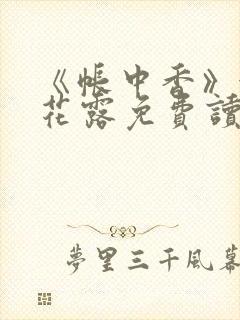 《帳中香》
花露免費讀
夢里三千風幕